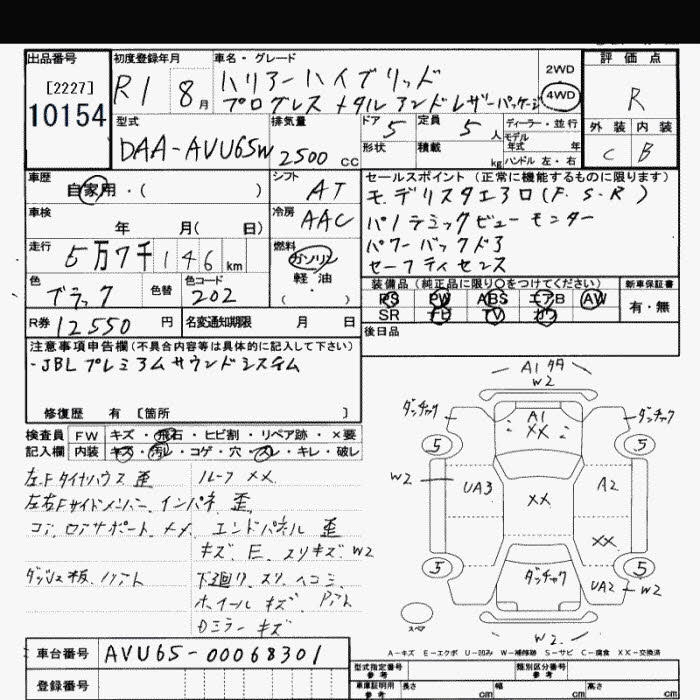 出品番号 初度登録年月 車名・グレード 評価点
[2227] R1 8月 ハリアーハイブリッド 2WD R
10154 プログレス メタル アンド レザーパッケージ 4WD
型式 排気量 ドア 5 定員 5人 ディーラー・並行 外装 内装
DAA-AVU65W 2500cc 形状 積載 kg モデル年式 年 C B
ハンドル 左・右
車歴 シフト セールスポイント (正常に機能するものに限ります)
自家用・( ) AT モデリスタエアロ(F.S.R)
車検 冷房 パノラミックビューモニター
年 月( 日) AAC パワーバックドア
走行 5万7千146km 燃料 セーフティセンス
ガソリン
軽油
( )
色 色替 色コード 装備品 (純正品に限り○をつけてください) 新車保証書
ブラック 202 PS PW ABS エアB AW 有・無
SR ナビ TV カワ
R券 12550円 名変通知期限 月 日 後日品
注意事項申告欄(不具合内容等は具体的に記入して下さい)
・JBLプレミアムサウンドシステム
修復歴 有 [箇所 ]
検査員 FW キズ・飛石・ヒビ割・リペア跡・×要
記入欄 内装 キズ・汚レ・コゲ・穴・スレ・キレ・破レ
左Fタイヤハウス 歪 ルーフ XX
左右Fサイドメンバー、インパネ 歪
コア、ロアサポート、メメ エンドパネル 歪
キズ、E、スリキズ W2
ダッシュ板、ハアト 下廻り、スリ、ヘコミ、
ホイール キズ、
Dミラー キズ
A1 W2
ダンチャク A1 XX ダンチャク
5 5
W2 UA3 XX A2
XX
5 ダンチャク 5
UA2 W2
スペア W2
A-キズ E-エクボ U-凹み W-補修跡 S-サビ C-腐食 XX-交換済
車台番号 AVU65-00068301
型式指定番号 参考 類別区分番号 参考
登録番号 車庫証明用 参考 長さ cm 幅 cm 高さ cm